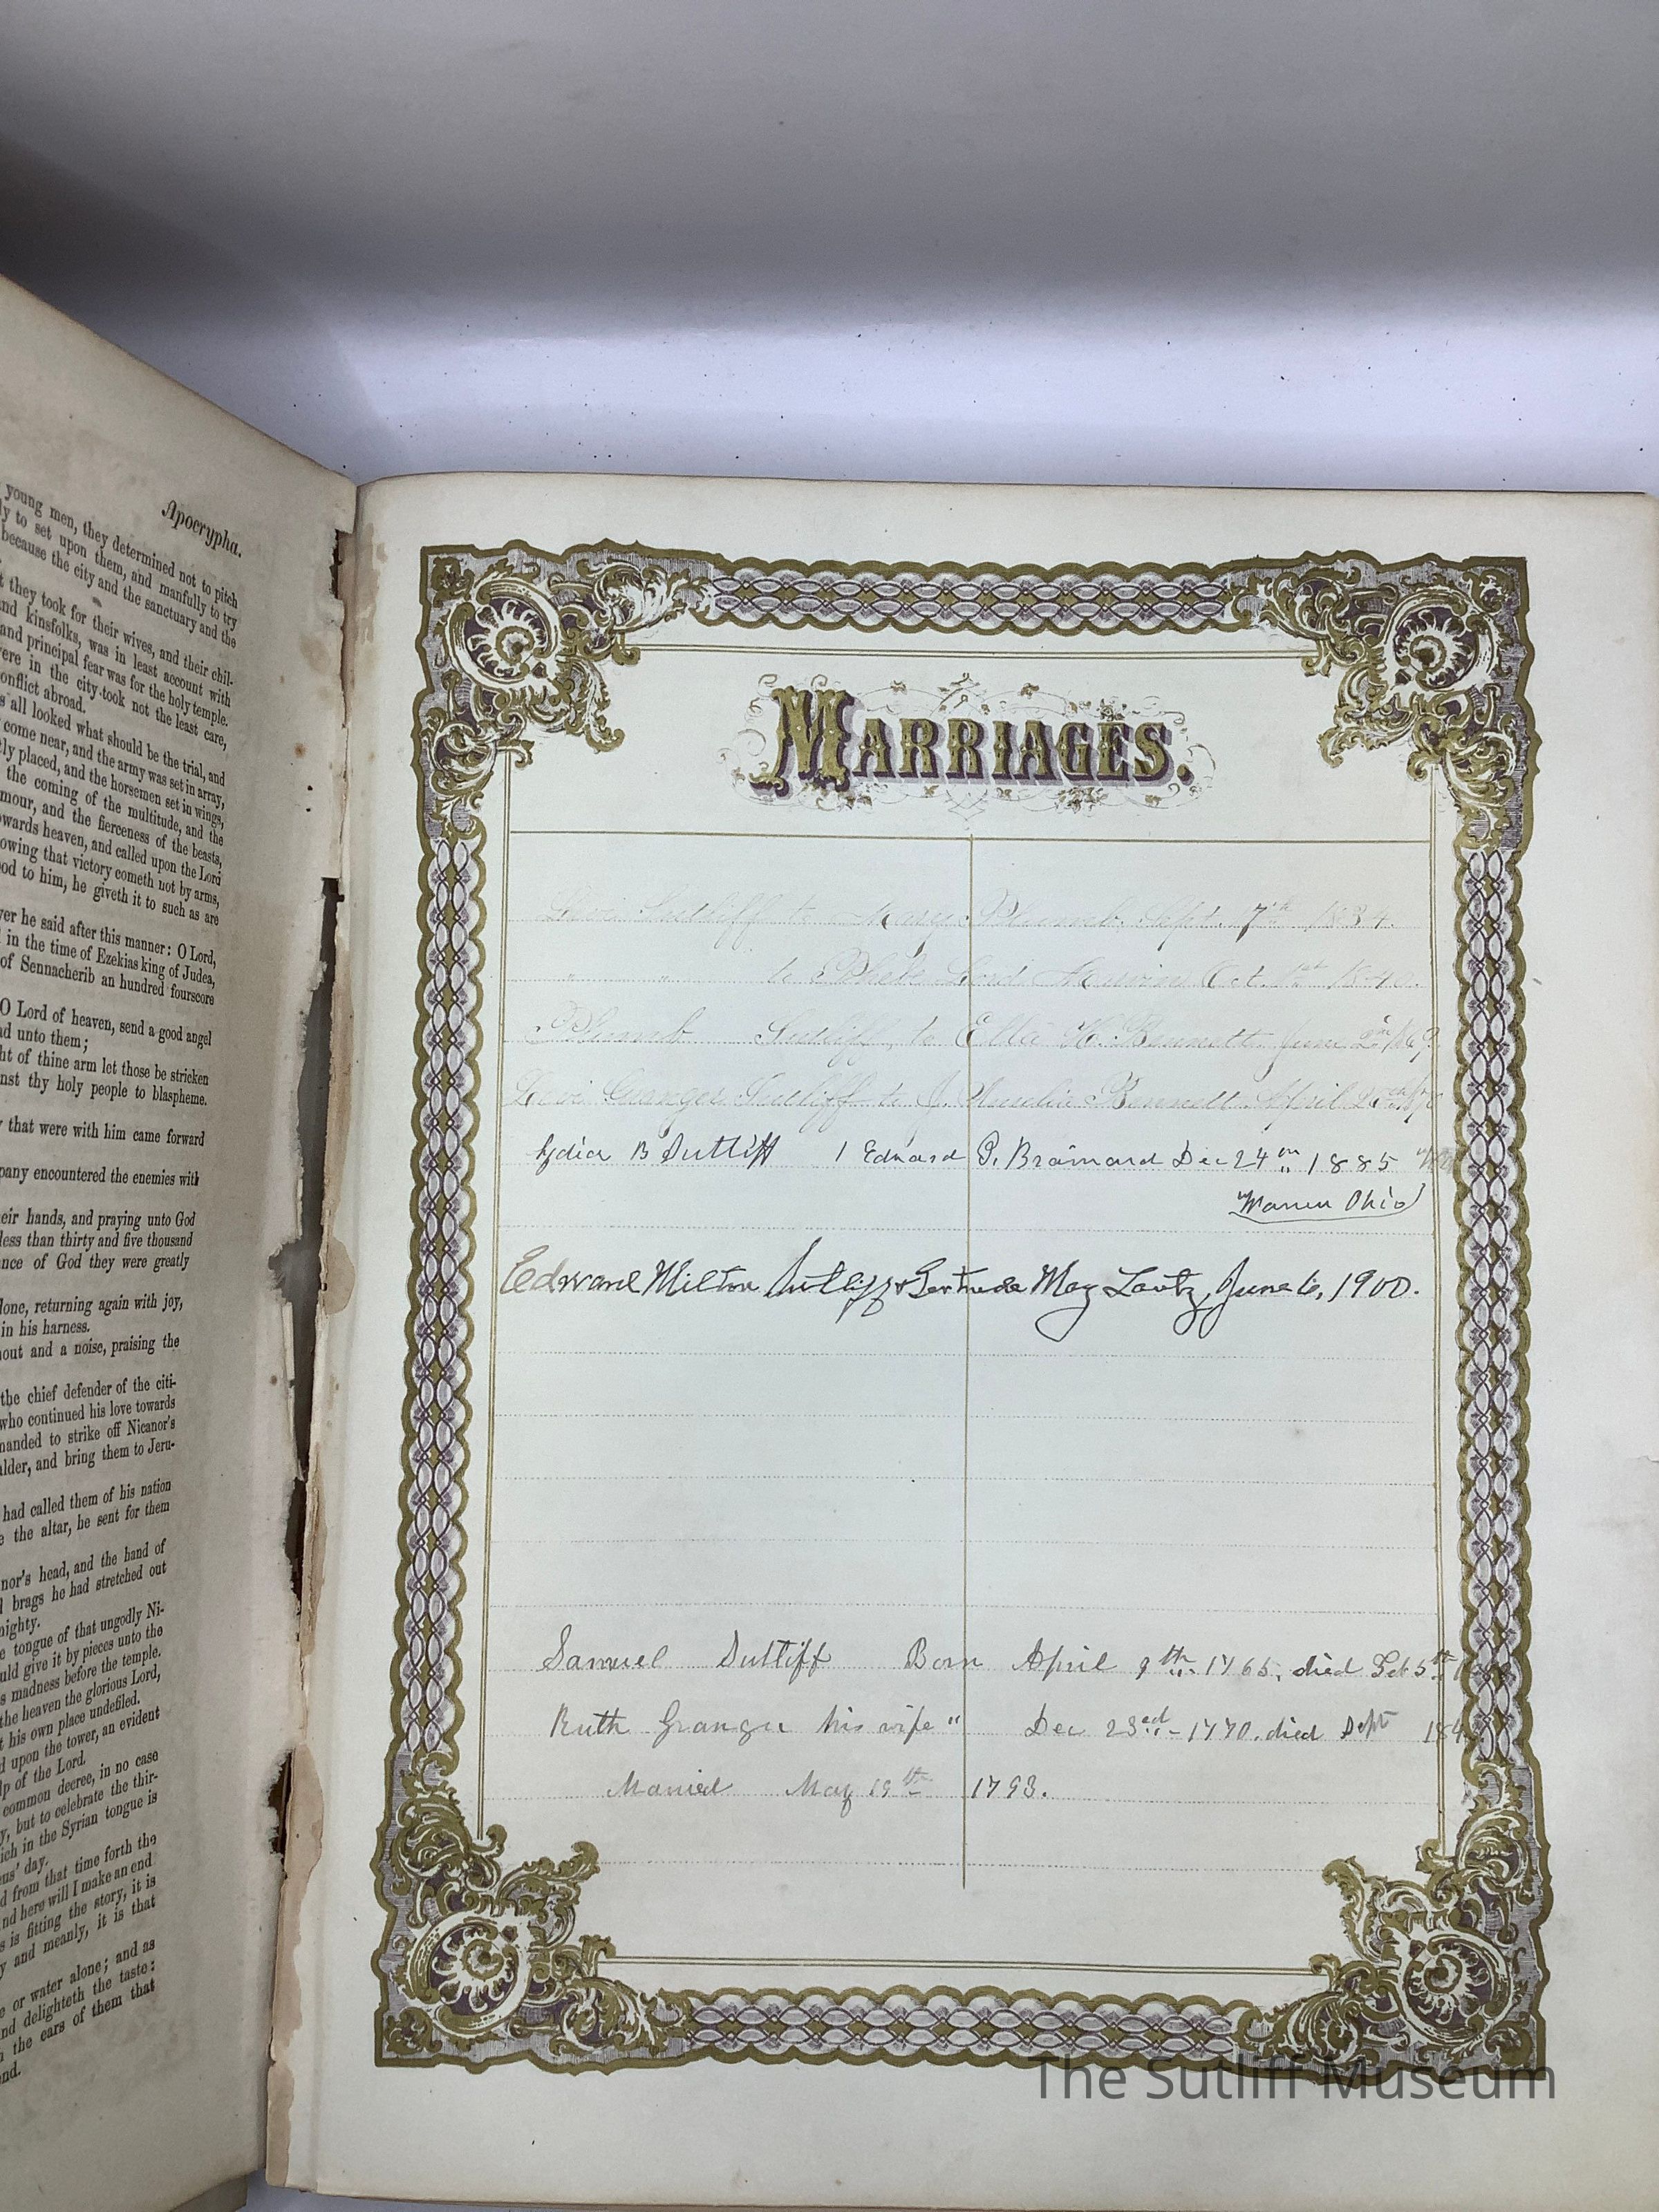 Apocrypha.
young men, they determined not to pitch
ly to set upon them, and manfully to try
because the city and the sanctuary and the
they took for their wives, and their chil-
and kinsfolks, was in least account with
and principal fear was for the holy temple.
ere in the city took not the least care,
onflict abroad.
s all looked what should be the trial, and
come near, and the army was set in array,
tly placed, and the horsemen set in wings,
the coming of the multitude, and the
mour, and the fierceness of the beasts,
owards heaven, and called upon the Lord
owing that victory cometh not by arms,
od to him, he giveth it to such as are
er he said after this manner: O Lord,
l in the time of Ezekias king of Judea,
of Sennacherib an hundred fourscore
O Lord of heaven, send a good angel
d unto them;
ht of thine arm let those be stricken
nst thy holy people to blaspheme.
that were with him came forward
pany encountered the enemies with
eir hands, and praying unto God
less than thirty and five thousand
nce of God they were greatly
lone, returning again with joy,
in his harness.
out and a noise, praising the
the chief defender of the citi-
who continued his love towards
manded to strike off Nicanor's
lder, and bring them to Jeru-
had called them of his nation
e the altar, he sent for them
nor's head, and the hand of
brags he had stretched out
mighty.
e tongue of that ungodly Ni-
uld give it by pieces unto the
s madness before the temple.
the heaven the glorious Lord,
t his own place undefiled.
d upon the tower, an evident
lp of the Lord.
common decree, in no case
y, but to celebrate the thir-
ich in the Syrian tongue is
us' day.
d from that time forth the
nd here will I make an end
s is fitting the story, it is
y and meanly, it is that
e or water alone; and as
nd delighteth the taste:
the ears of them that
nd.
MARRIAGES.
Levi Sutliff to Mary Plumb, Sept. 7th 1834.
" " to Phebe Lord Marvin Oct. 1st 1840.
Plumb Sutliff, to Ella H. Bennett June
Levi Granger Sutliff to J. Aurelia Bennett. April
Lydia B Sutliff Edward P. Brainard Dec 24 1885
Warren Ohio
Edward Milton Sutliff & Gertrude May Lautz, June 6, 1900.
Samuel Sutliff Born April 9th 1765, died 5th
Ruth Granger his wife " Dec 23ed - 1770. died Sept 184
Married May 19th 1793.
The Sutliff Museum